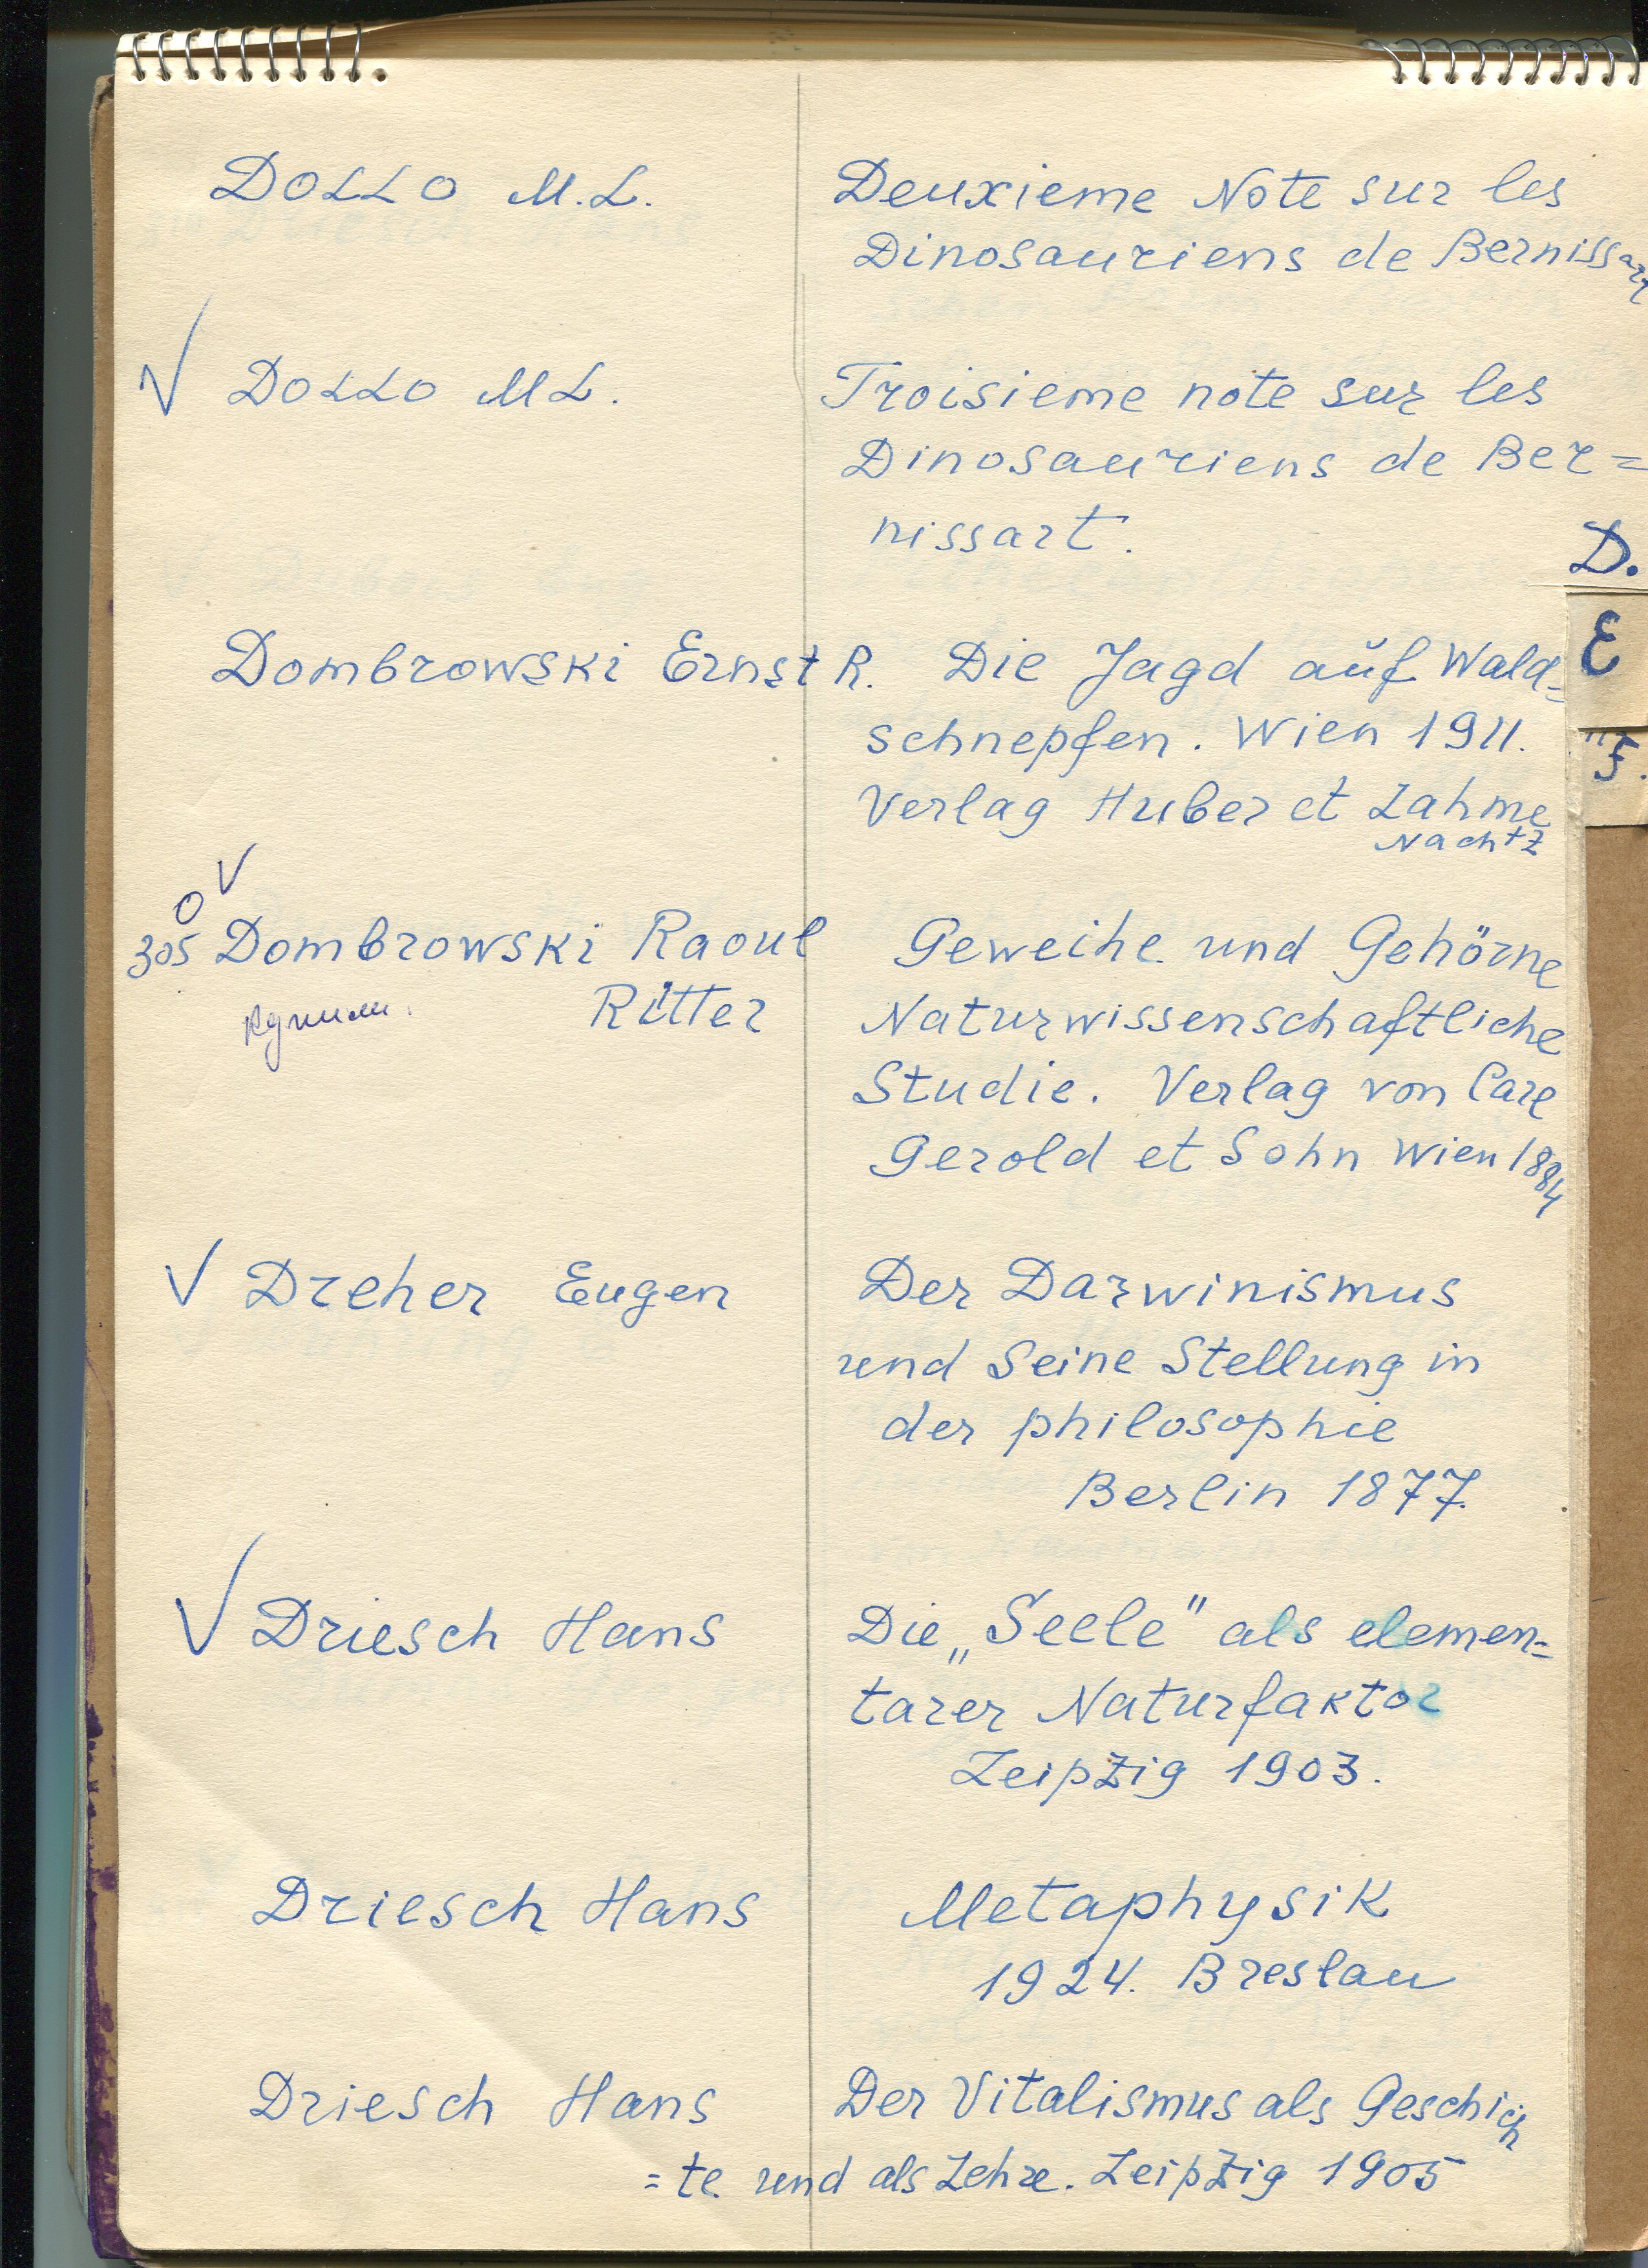 Dollo M.L. Deuxieme Note sur les
Dinosauriens de Bernissart
√ Dollo M L. Troisieme note sur les
Dinosauriens de Ber=
nissart.
D.
E
Dombrowski Ernst R. Die Jagd auf Wald=
schnepfen. Wien 1911.
Verlag Huber et Lahme
Nachtz
√
0
305 Dombrowski Raoul Geweihe und Gehörne
Ritter Naturwissenschaftliche
Studie. Verlag von Carl
Gerold et Sohn Wien 1884
√ Dreher Eugen Der Darwinismus
und Seine Stellung in
der philosophie
Berlin 1877.
√ Driesch Hans Die „Seele" als elemen=
tarer Naturfaktor
Leipzig 1903.
Driesch Hans Metaphysik
1924. Breslau
Driesch Hans Der Vitalismus als Geschich
=te und als Lehre. Leipzig 1905